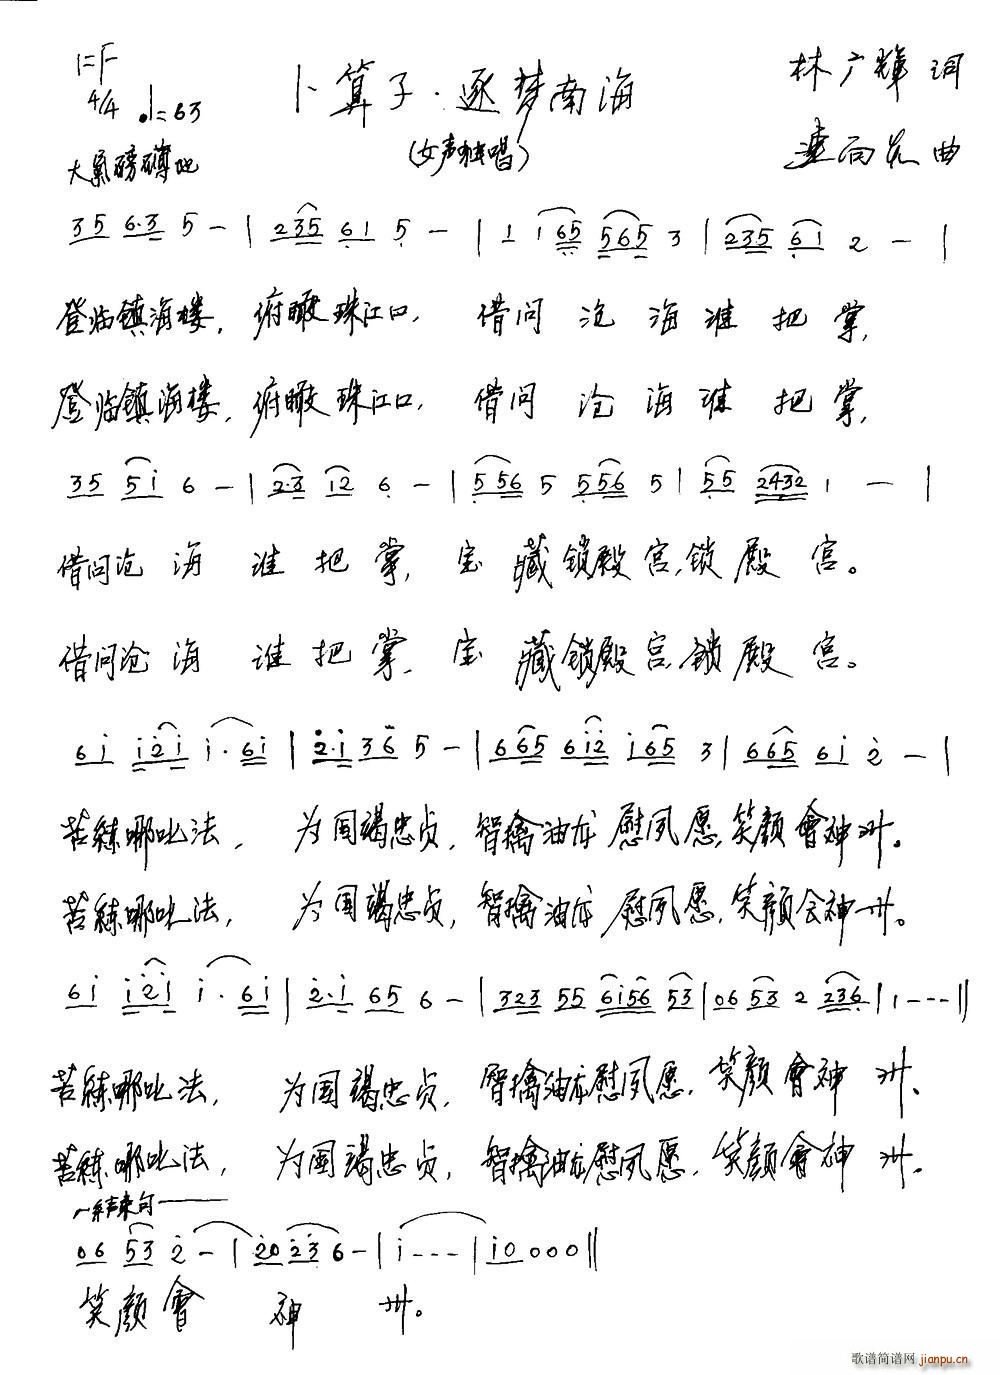 1=F
4/4 ♩=63
卜算子·逐梦南海
林广辉 词
(女声独唱)
曲
大气磅礴地
35 6·3 5 - | 235 61 5 - | 1 165 565 3 | 235 61 2 - |
登临镇海楼，俯瞰珠江口， 借问沧海谁把掌，
登临镇海楼，俯瞰珠江口， 借问沧海谁把掌，
35 51 6 - | 2·3 12 6 - | 556 5 556 5 | 55 2432 1 - |
借问沧海谁把掌，宝藏锁殿宫，锁殿宫。
借问沧海谁把掌，宝藏锁殿宫，锁殿宫。
61 121 1·61 | 2·1 36 5 - | 665 612 165 3 | 665 61 2 - |
苦练哪吒法， 为国竭忠贞，智擒油龙慰夙愿，笑颜會神州。
苦练哪吒法， 为国竭忠贞，智擒油龙慰夙愿，笑颜会神州。
61 121 1·61 | 2·1 65 6 - | 323 55 6156 53 | 06 53 2 236 | 1 - - - ‖
苦练哪吒法， 为国竭忠贞，智擒油龙慰夙愿，笑颜會神州。
苦练哪吒法， 为国竭忠贞，智擒油龙慰夙愿，笑颜會神州。
结束句
06 53 2 - | 20 23 6 - | 1 - - - | 10 0 0 0 ‖
笑颜會 神 州。
歌谱简谱网 jianpu.cn